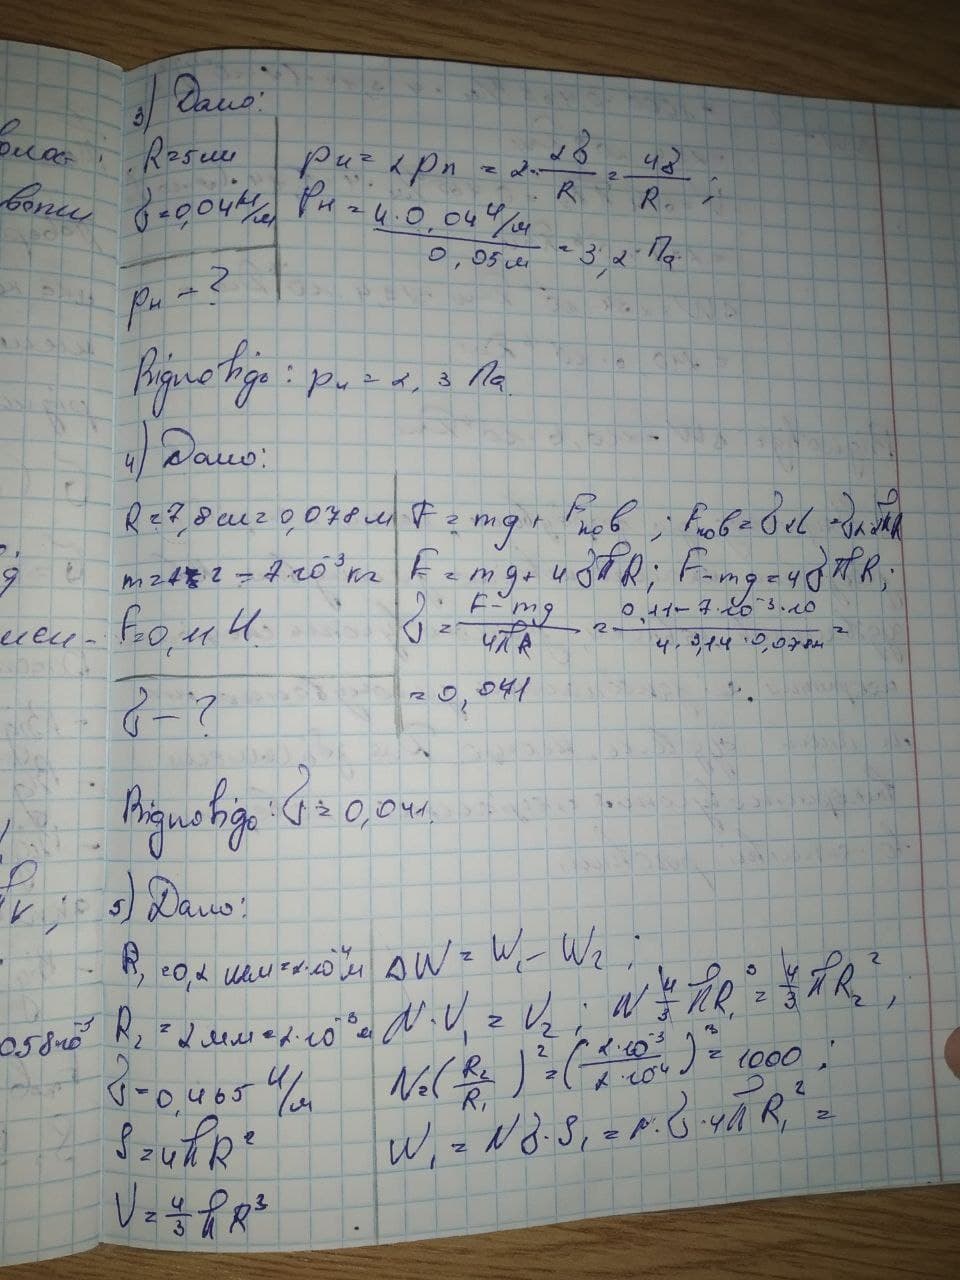 3) Дано:
R=5см
σ=0,04 Н/м
pн - ?
pн = 2pл = 2·2σ/R = 4σ/R ;
Pн = 4·0,04 Н/м / 0,05м = 3,2 Па
Відповідь: pн = 2,3 Па.
4) Дано:
R=7,8см=0,078м
m=7г=7·10⁻³кг
F=0,11 Н
σ - ?
F = mg + Fпов ; Fпов =
F = mg + 4σπR; F-mg = 4σπR;
σ = F-mg / 4πR = 0,11-7·10⁻³·10 / 4·3,14·0,078м =
= 0,041
Відповідь: σ = 0,041.
5) Дано:
R₁=0,2 мм=2·10⁻⁴м
R₂=2мм=2·10⁻³м
σ=0,465 Н/м
S=4πR²
V=4/3 πR³
ΔW = W₁ - W₂ ;
N·V₁ = V₂ ; N 4/3 πR₁³ = 4/3 πR₂² ,
N=(R₂/R₁)² = (2·10⁻³/2·10⁻⁴)³ = 1000 ;
W₁ = Nσ·S₁ = N·σ·4πR₁² =